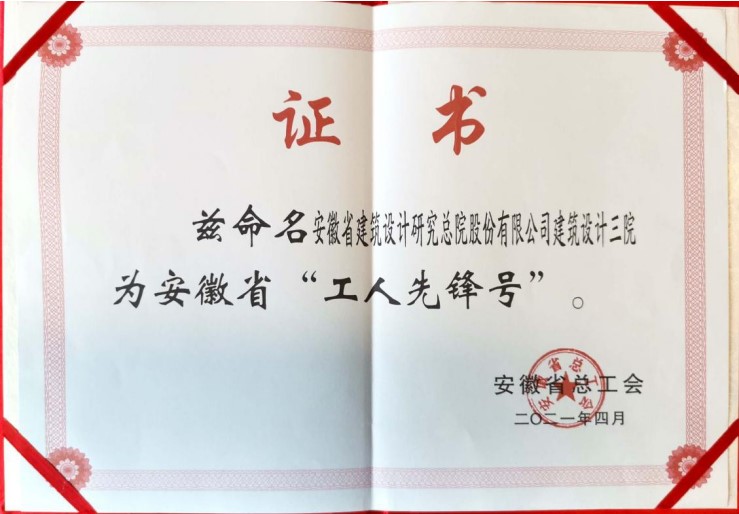 证书
兹命名安徽省建筑设计研究总院股份有限公司建筑设计三院
为安徽省“工人先锋号”。
安徽省总工会
二〇二一年四月
安徽省总工会